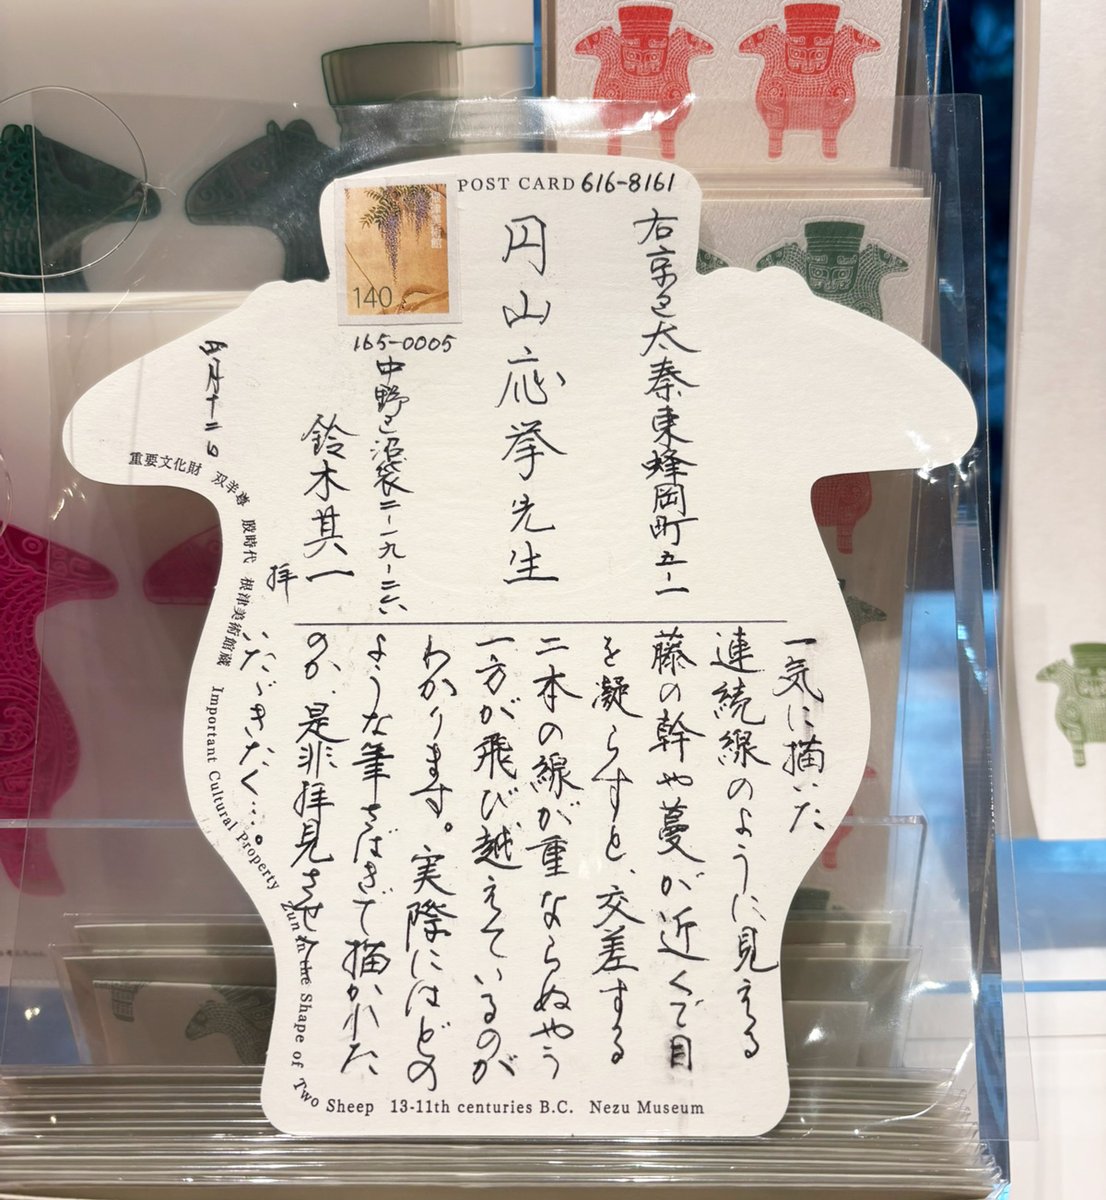 POST CARD 616-8161
右京区太秦東蜂岡町五-一
円山応挙先生
140
165-0005
中野区沼袋二-一九-二六
鈴木其一
拝
五月十二日
一気に描いた
連続線のように見える
藤の幹や蔓が近くで目
を凝らすと、交差する
二本の線が重ならぬやう
一方が飛び越えているのが
わかります。実際にはどの
ような筆さばきで描かれた
のか、是非拝見させて
いただきたく…。
重要文化財 双羊尊 殷時代 根津美術館蔵 Important Cultural Property Zun in the Shape of Two Sheep 13-11th centuries B.C. Nezu Museum